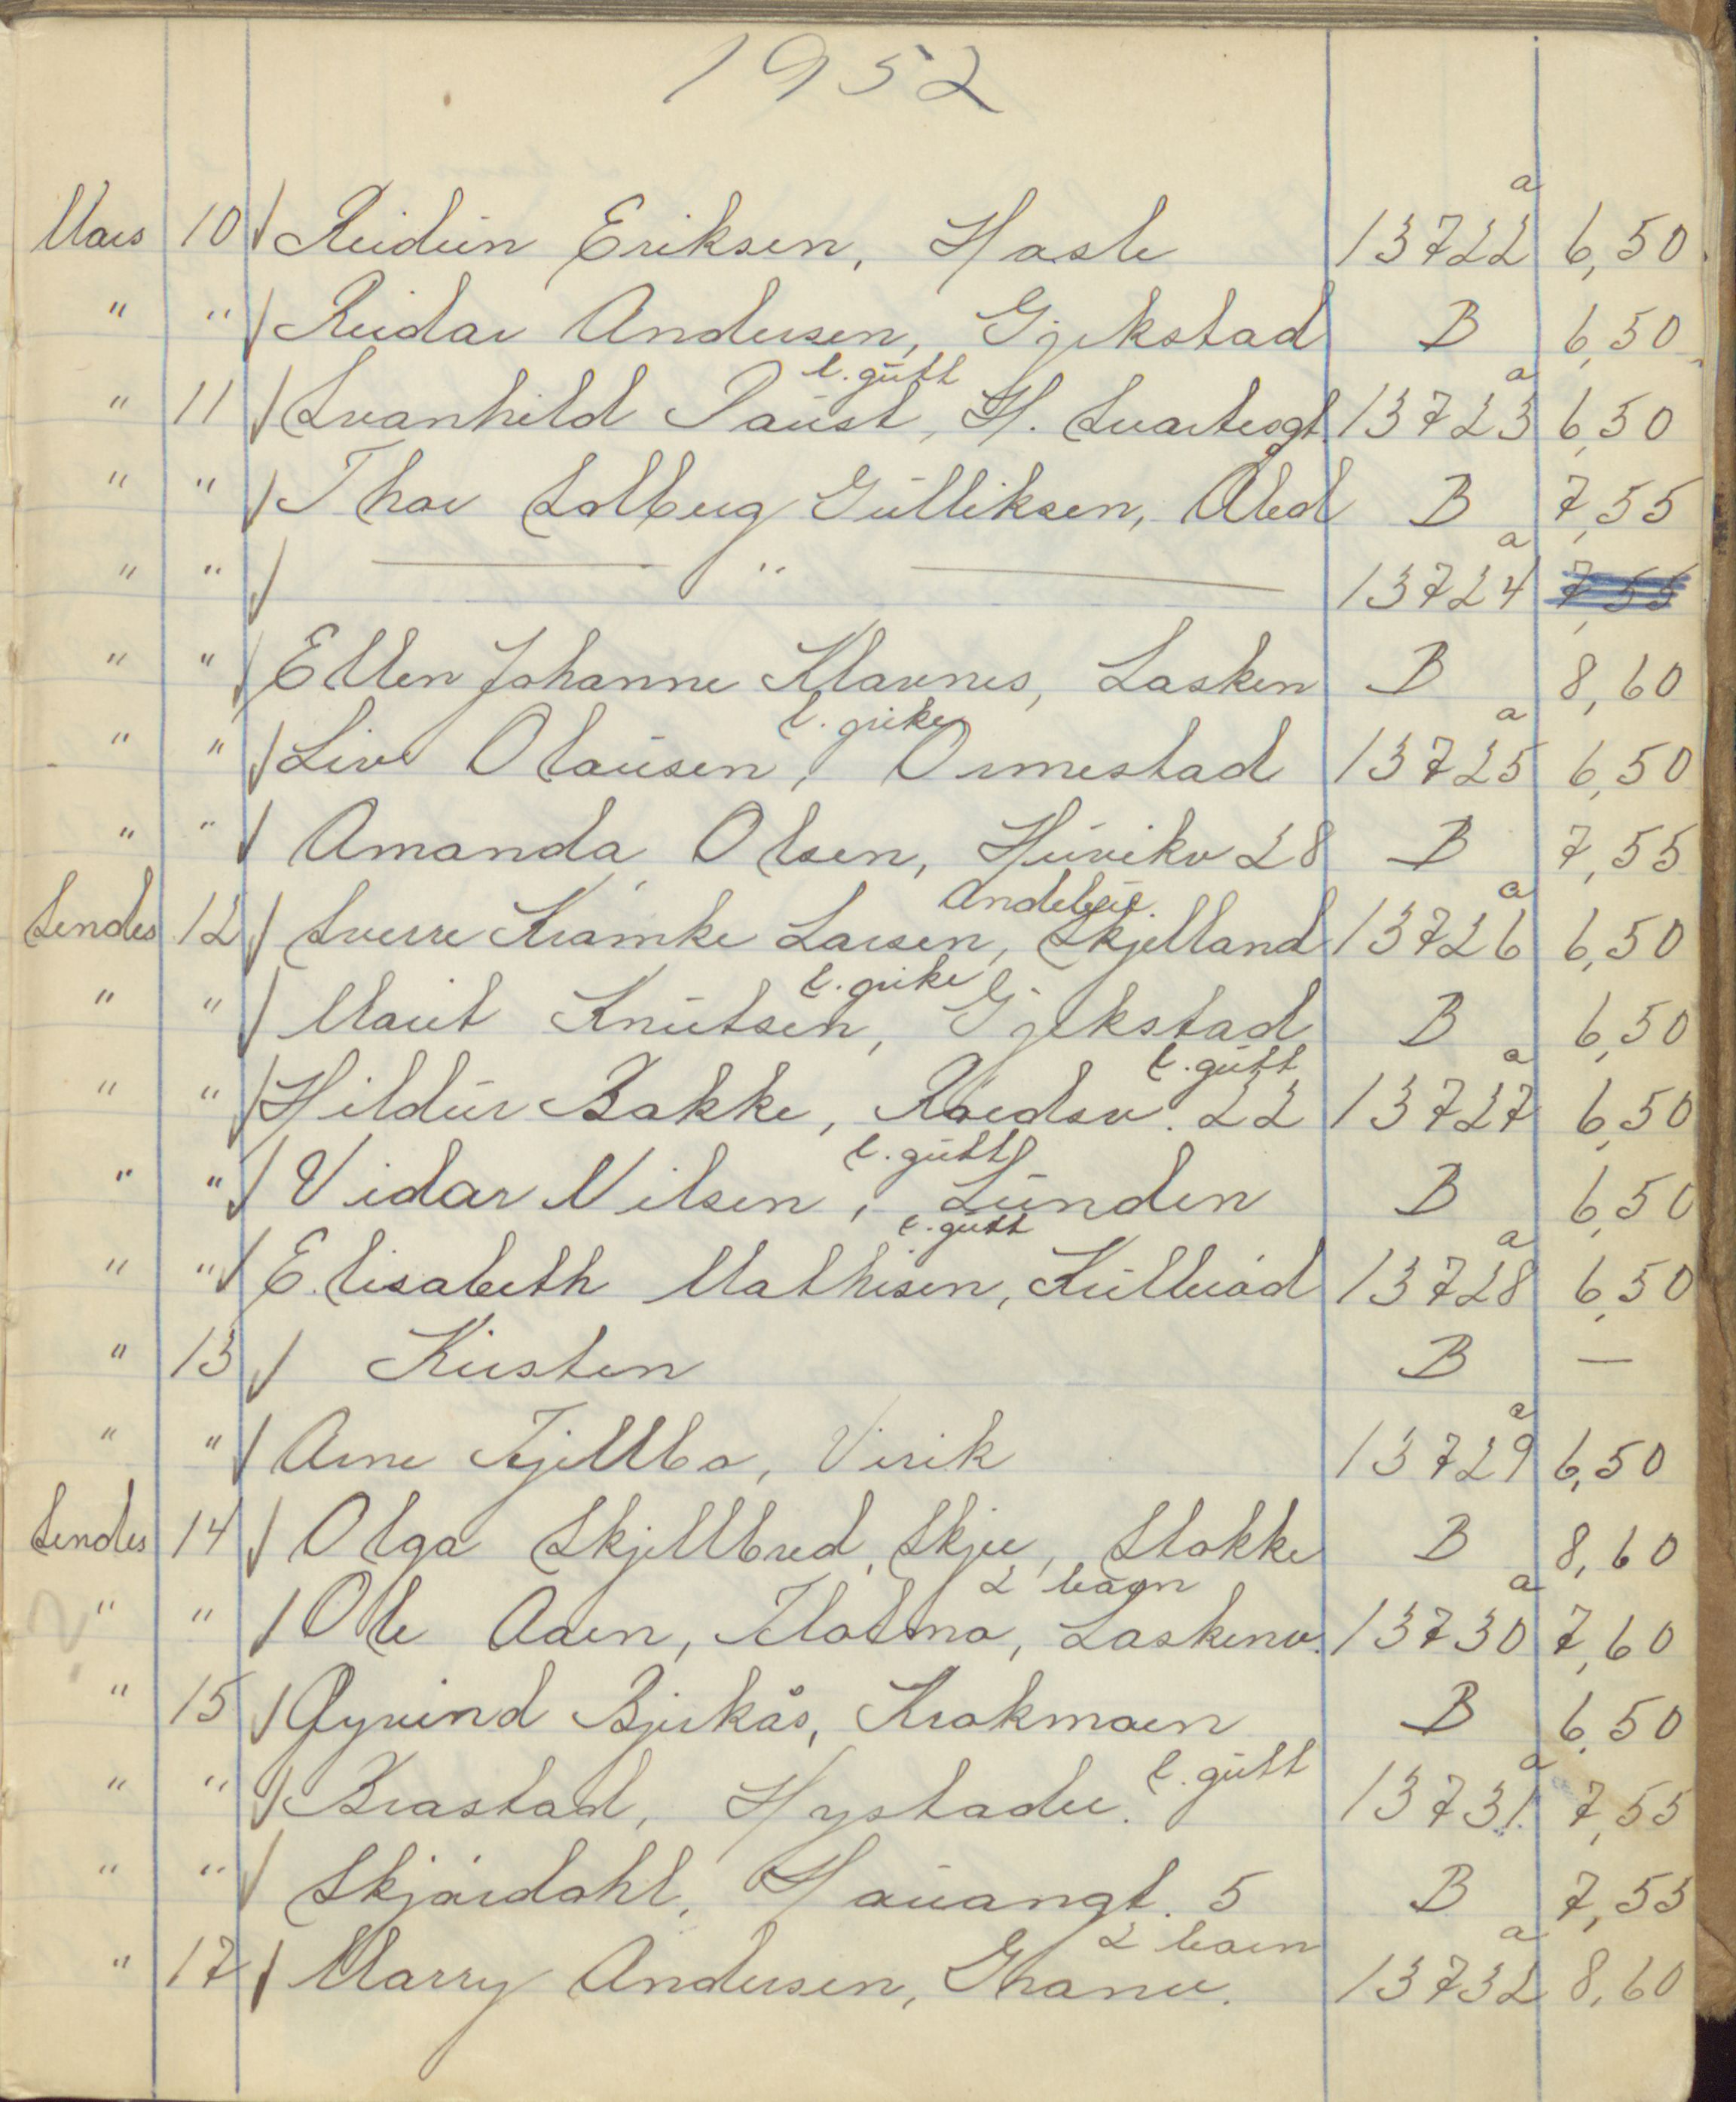 1952
Mars 10 √ Reidun Eriksen, Hasle 13722 a 6,50
" " √ Reidar Andersen, Gjekstad B 6,50
l. gutt
" 11 √ Svanhild Paust, H. Svartsgt. 13723 a 6,50
" " √ Thor Solberg Gulliksen, Åbol B 7,55
" " √ — " — 13724 a 7,55
" " √ Ellen Johanne Klavnes, Lasken B 8,60
l. pike
" " √ Live Olausen, Ormestad 13725 a 6,50
" " √ Amanda Olsen, Huvikv 28 B 7,55
Andebu.
Sendes 12 √ Sverre Kramke Larsen, Skjelland 13726 a 6,50
l. pike
" " √ Marit Knutsen, Gjekstad B 6,50
l. gutt
" " √ Hildur Bakke, Roedsv. 22 13727 a 6,50
l. gutt
" " √ Vidar Nilsen, Lunden B 6,50
l. gutt
" " √ Elisabeth Mathisen, Kullerød 13728 a 6,50
" 13 √ Kirsten B —
" " √ Arne Kjellbo, Virik 13729 a 6,50
Sendes 14 √ Olga Skjellbred, Skjee, Stokke B 8,60
2 barn
" " √ Ole Aaen, Flotmo, Laskenv. 13730 a 7,60
" 15 √ Øyvind Bjerkås, Krokmoen B 6,50
l. gutt
" " √ Brastad, Hystadv. 13731 a 7,55
" " √ Skjørdahl, Hauangt. 5 B 7,55
2 barn
" 17 √ Marry Andersen, Granv. 13732 a 8,60